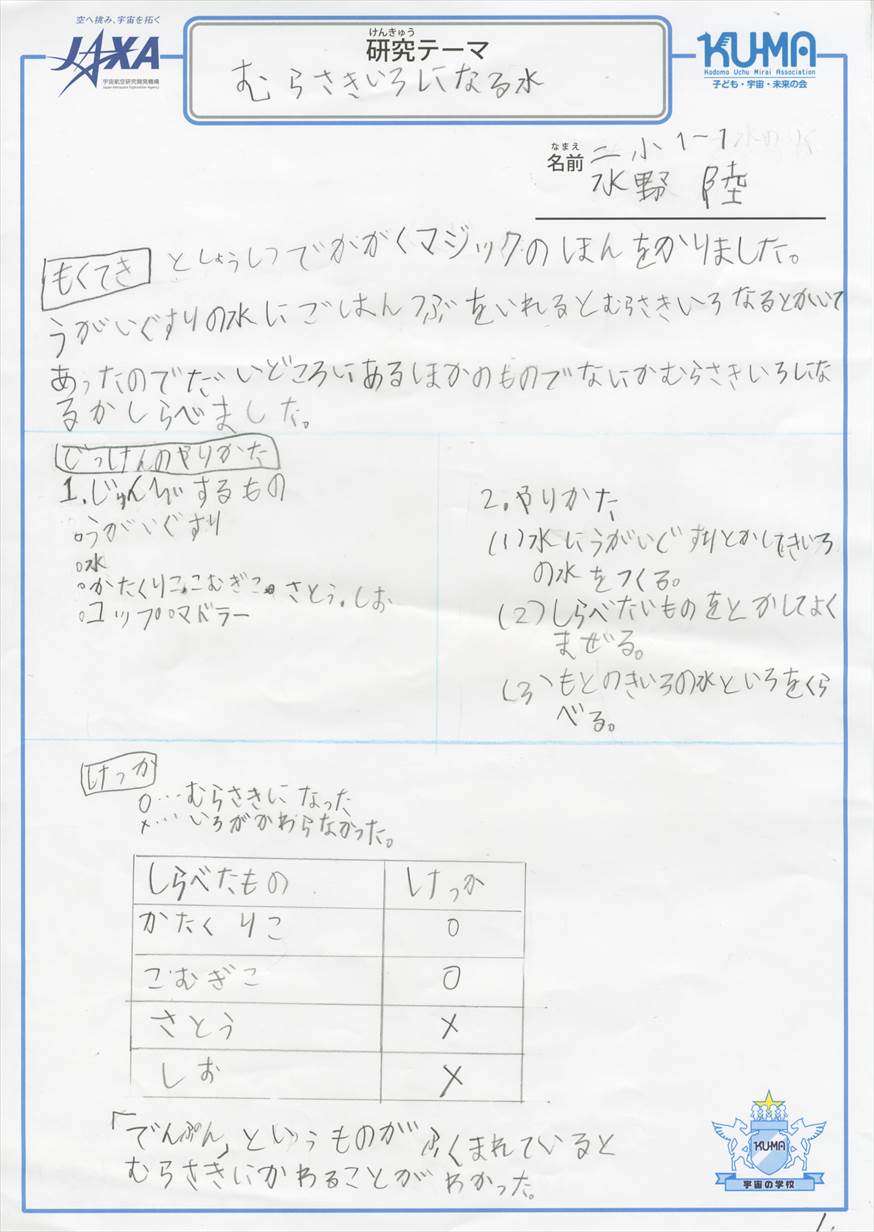 空へ挑み、宇宙を拓く
JAXA
宇宙航空研究開発機構
Japan Aerospace Exploration Agency
けんきゅう
研究テーマ
むらさきいろになる水
KU-MA
Kodomo Uchu Mirai Association
子ども・宇宙・未来の会
なまえ
名前
二小1-1
水野 陸
もくてき としょしつでかがくマジックのほんをかりました。
うがいぐすりの水にごはんつぶをいれるとむらさきいろなるとかいて
あったのでだいどころにあるほかのものでなにかむらさきいろにな
るかしらべました。
じっけんのやりかた
1.じゅんびするもの
○うがいぐすり
○水
○かたくりこ○こむぎこ○さとう○しお
○コップ○マドラー
2.やりかた
(1)水にうがいぐすりとかしてきいろ
の水をつくる。
(2)しらべたいものをとかしてよく
まぜる。
(3)もとのきいろの水といろをくら
べる。
けっか
○…むらさきになった
×…いろがかわらなかった。
しらべたもの けっか
かたくりこ ○
こむぎこ ○
さとう ×
しお ×
「でんぷん」というものがふくまれていると
むらさきにかわることがわかった。
KU-MA
宇宙の学校